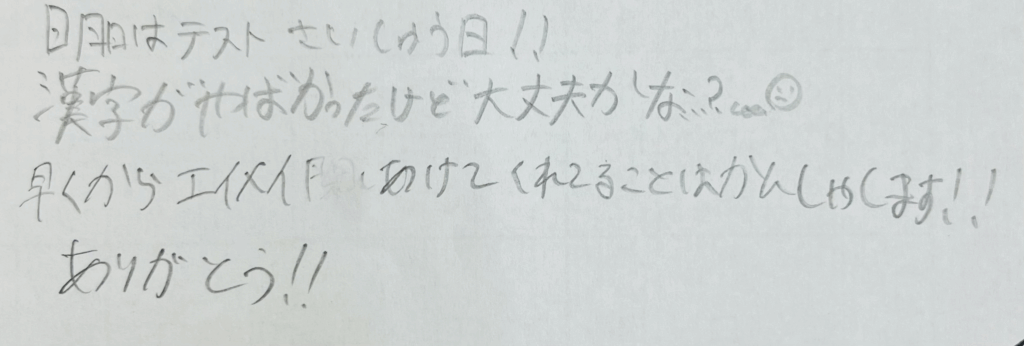 明日はテストさいしゅう日!!
漢字がやばかったけど大丈夫かな…?…☺
早くからエイメイ あけてくれてることはかんしゃします!!
ありがとう!!